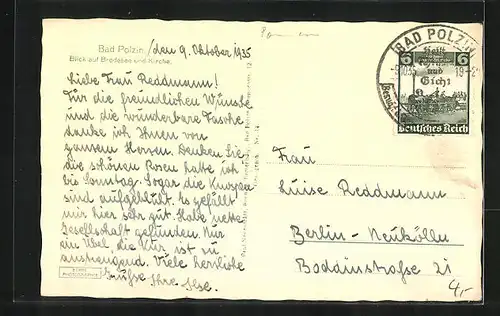 Bad Polzin, /den 9. Oktober 1935
Blick auf Bredesee und Kirche.
Liebe Frau Reddmann!
Für die freundlichen Wünsche
und die wunderbare Tasche
danke ich Ihnen von
ganzem Herzen. Denken Sie
die schönen Rosen hatte ich
bis Sonntag. Sogar die Knospen
sind aufgeblüht. Es gefällt
mir hier sehr gut. Habe nette
Gesellschaft gefunden. Nur
ein Übel die Kur ist zu
anstrengend. Viele herzliche
Grüsse Ihre Ilse.
BAD POLZIN
heilt
und
Gicht
6
Deutsches Reich
Frau
Luise Reddmann
Berlin-Neukölln
Boddinstraße 21
4,-